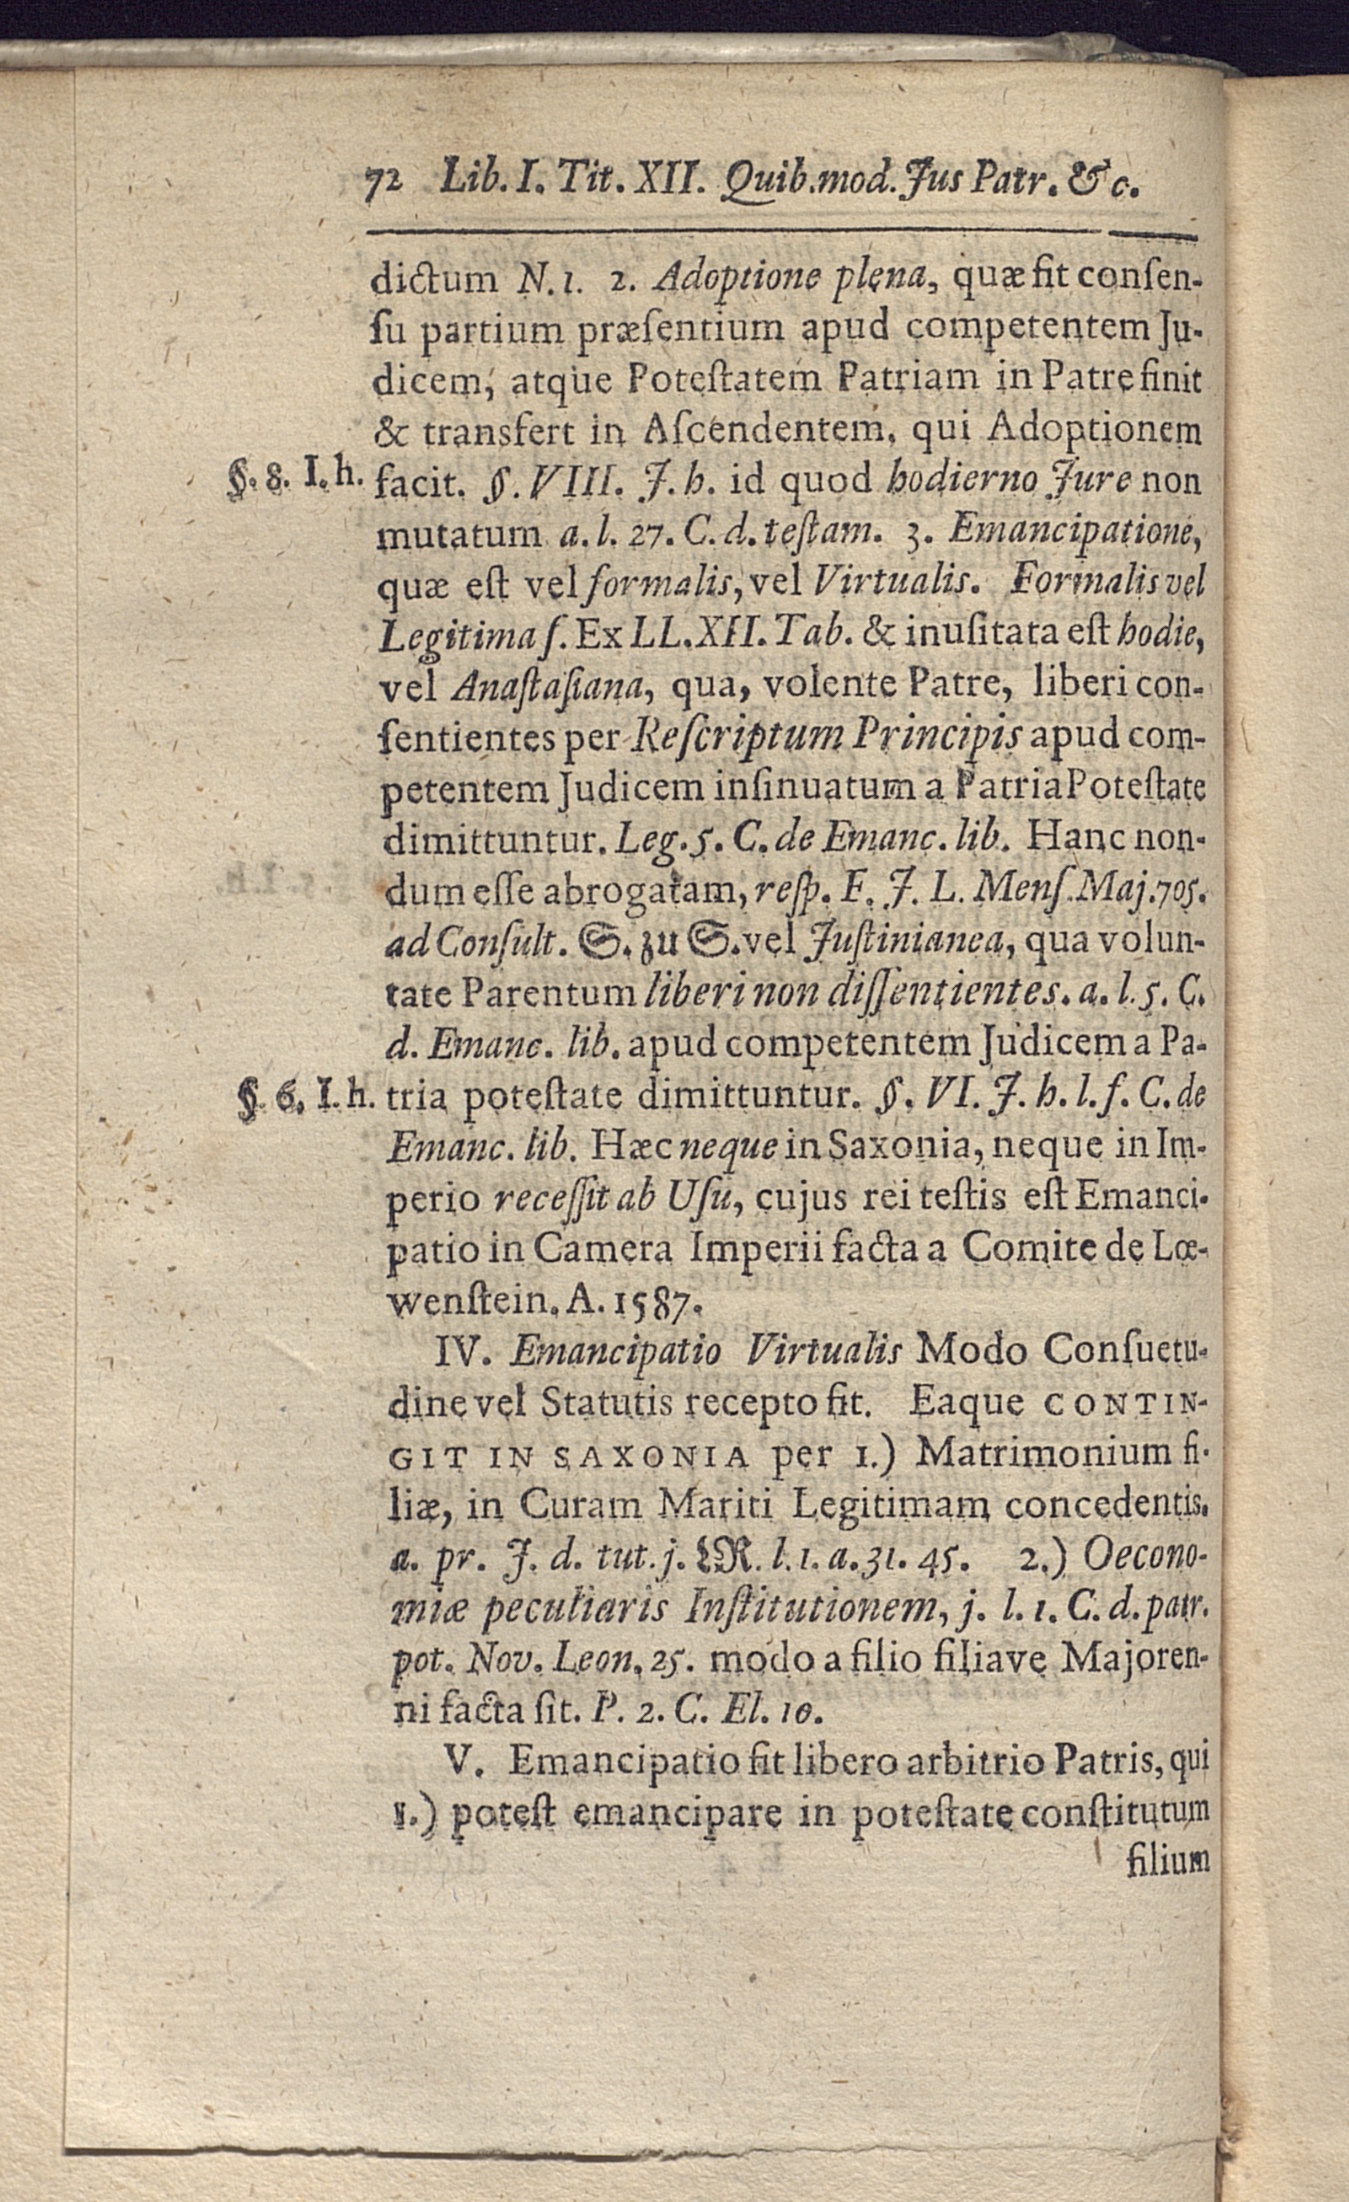 72 Lib. I. Tit. XII. Quib. mod. Jus Patr. &c.
dictum N. 1. 2. Adoptione plena, quæ fit conſen-
ſu partium præſentium apud competentem Ju-
dicem, atque Poteſtatem Patriam in Patre finit
& transfert in Aſcendentem, qui Adoptionem
§. 8. I. h.
facit. §. VIII. J. h. id quod hodierno Jure non
mutatum a. l. 27. C. d. teſtam. 3. Emancipatione,
quæ eſt vel formalis, vel Virtualis. Formalis vel
Legitima ſ. Ex LL. XII. Tab. & inuſitata eſt hodie,
vel Anaſtaſiana, qua, volente Patre, liberi con-
ſentientes per Reſcriptum Principis apud com-
petentem Judicem inſinuatum a Patria Poteſtate
dimittuntur. Leg. 5. C. de Emanc. lib. Hanc non-
dum eſſe abrogatam, reſp. F. J. L. Menſ. Maj. 705.
ad Conſult. S. zu S. vel Juſtinianea, qua volun-
tate Parentum liberi non diſſentientes. a. l. 5. C.
d. Emanc. lib. apud competentem Judicem a Pa-
§. 6. I. h.
tria poteſtate dimittuntur. §. VI. J. h. l. f. C. de
Emanc. lib. Hæc neque in Saxonia, neque in Im-
perio receſſit ab Uſu, cujus rei teſtis eſt Emanci-
patio in Camera Imperii facta a Comite de Lœ-
wenſtein. A. 1587.
IV. Emancipatio Virtualis Modo Conſuetu-
dine vel Statutis recepto fit. Eaque CONTIN-
GIT IN SAXONIA per 1.) Matrimonium fi-
liæ, in Curam Mariti Legitimam concedentis.
a. pr. J. d. tut. j. LR. l. 1. a. 31. 45. 2.) Oecono-
miæ peculiaris Inſtitutionem, j. l. 1. C. d. patr.
pot. Nov. Leon. 25. modo a filio filiave Majoren-
ni facta ſit. P. 2. C. El. 10.
V. Emancipatio fit libero arbitrio Patris, qui
1.) poteſt emancipare in poteſtate conſtitutum
filium